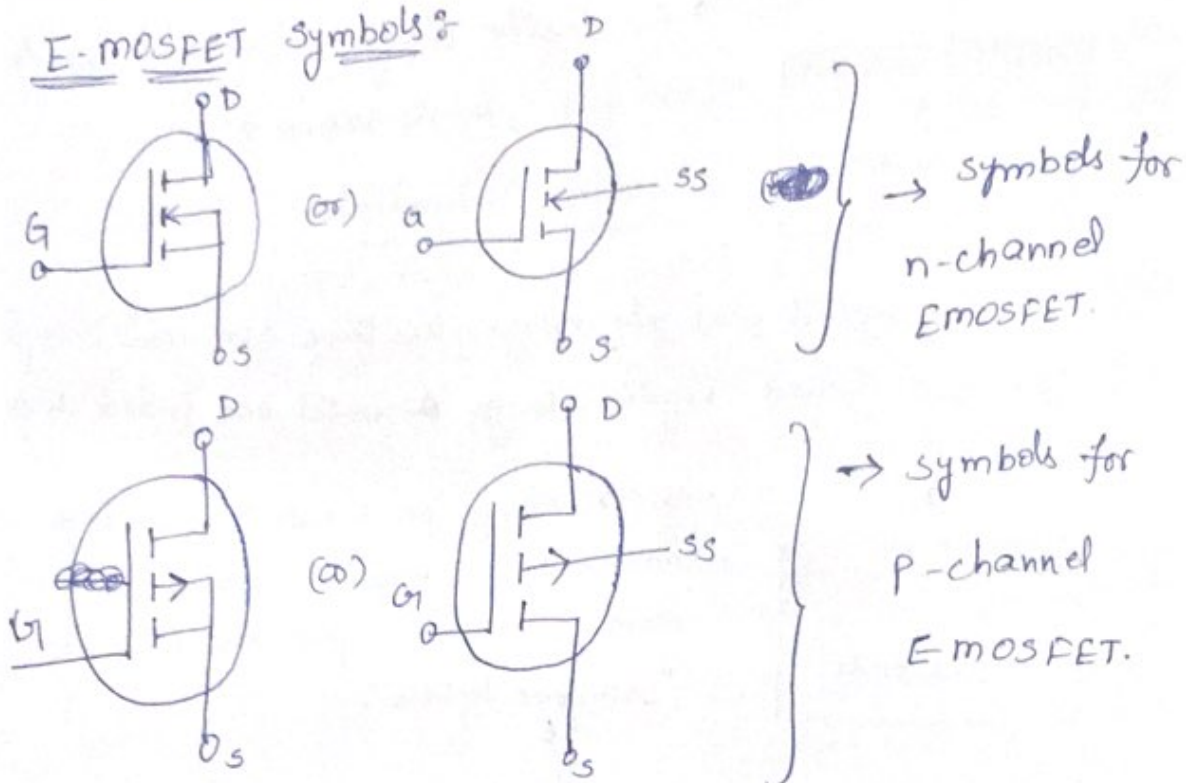 E-MOSFET Symbols:
D
G
S
(or)
D
G
SS
S
→ symbols for
n-channel
EMOSFET.
D
G
S
(or)
D
G
SS
S
→ symbols for
p-channel
E-MOSFET.